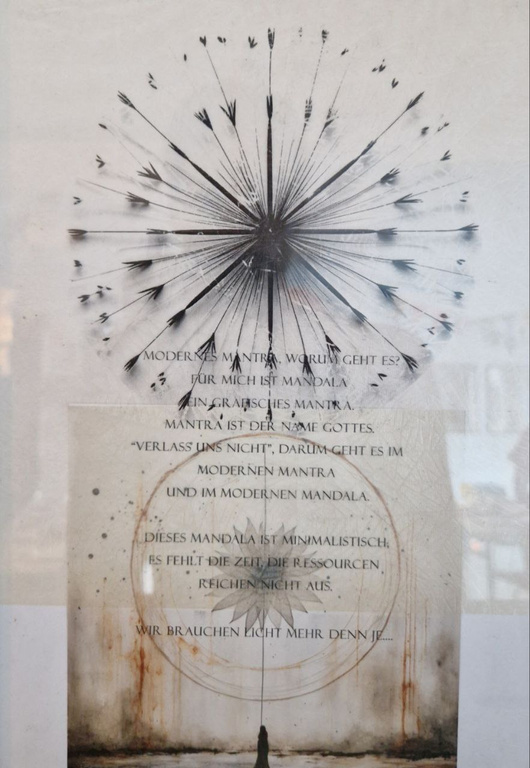 MODERNES MANTRA, WORUM GEHT ES?
FÜR MICH IST MANDALA
EIN GRAFISCHES MANTRA.
MANTRA IST DER NAME GOTTES.
"VERLASS UNS NICHT", DARUM GEHT ES IM
MODERNEN MANTRA
UND IM MODERNEN MANDALA.
DIESES MANDALA IST MINIMALISTISCH,
ES FEHLT DIE ZEIT, DIE RESSOURCEN
REICHEN NICHT AUS.
WIR BRAUCHEN LICHT MEHR DENN JE....